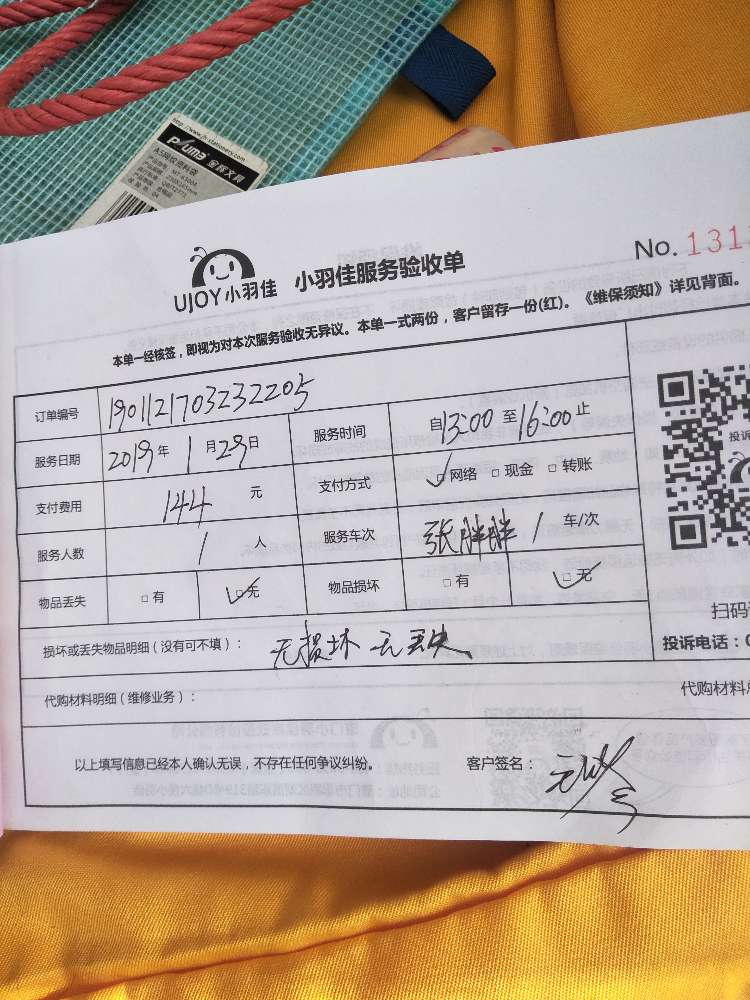 http://www.jh-stationery.com
PYUMB 金辉文具
A5网纹资料袋
UJOY小羽佳
小羽佳服务验收单
No. 131
本单一经核签，即视为对本次服务验收无异议。本单一式两份，客户留存一份(红)。《维保须知》详见背面。
订单编号 1901121703232205
服务日期 2019年1月29日 服务时间 自13:00至16:00止
支付费用 144元 支付方式 □网络 □现金 □转账
服务人数 1人 服务车次 张胖胖 1车/次
物品丢失 □有 □无 物品损坏 □有 □无
损坏或丢失物品明细（没有可不填）： 无损坏 无丢失
扫码
投诉电话：0
代购材料明细（维修业务）： 代购材料
以上填写信息已经本人确认无误，不存在任何争议纠纷。 客户签名：